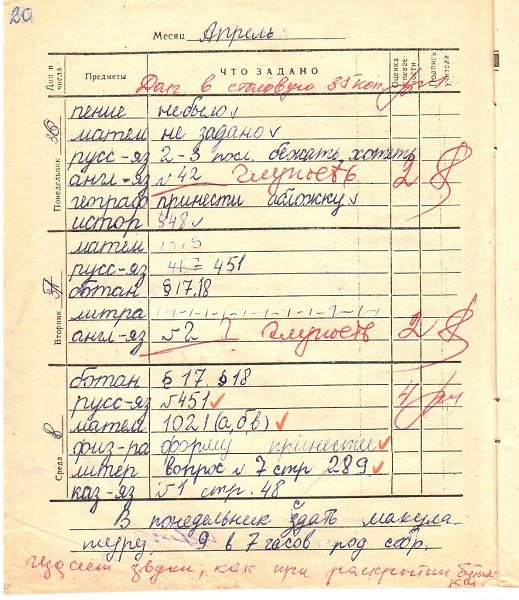 20
Месяц Апрель
Дни и числа Предметы ЧТО ЗАДАНО Оценка успеваемости Подпись учителя
Дал в столовую 35 коп.
Понедельник
пение не было ✓
матем не задано ✓
русс-яз 2-3 посл. бежать, хотеть
англ-яз №42 Глупость 2
географ принести обложку ✓
истор §48 ✓
Вторник
матем
русс-яз 467 451
ботан §17,18
литра
англ-яз №2 Глупость 2
Среда 8
ботан §17. §18
русс-яз №451 ✓ 4
матем 1021 (а,б в) ✓
физ-ра форму принести ✓
литер вопрос № 7 стр 289 ✓
каз-яз №1 стр. 48
В понедельник сдать макула
туру. 9 в 7 часов род собр.
Издает звуки, как при раскрытии бутыл
ки